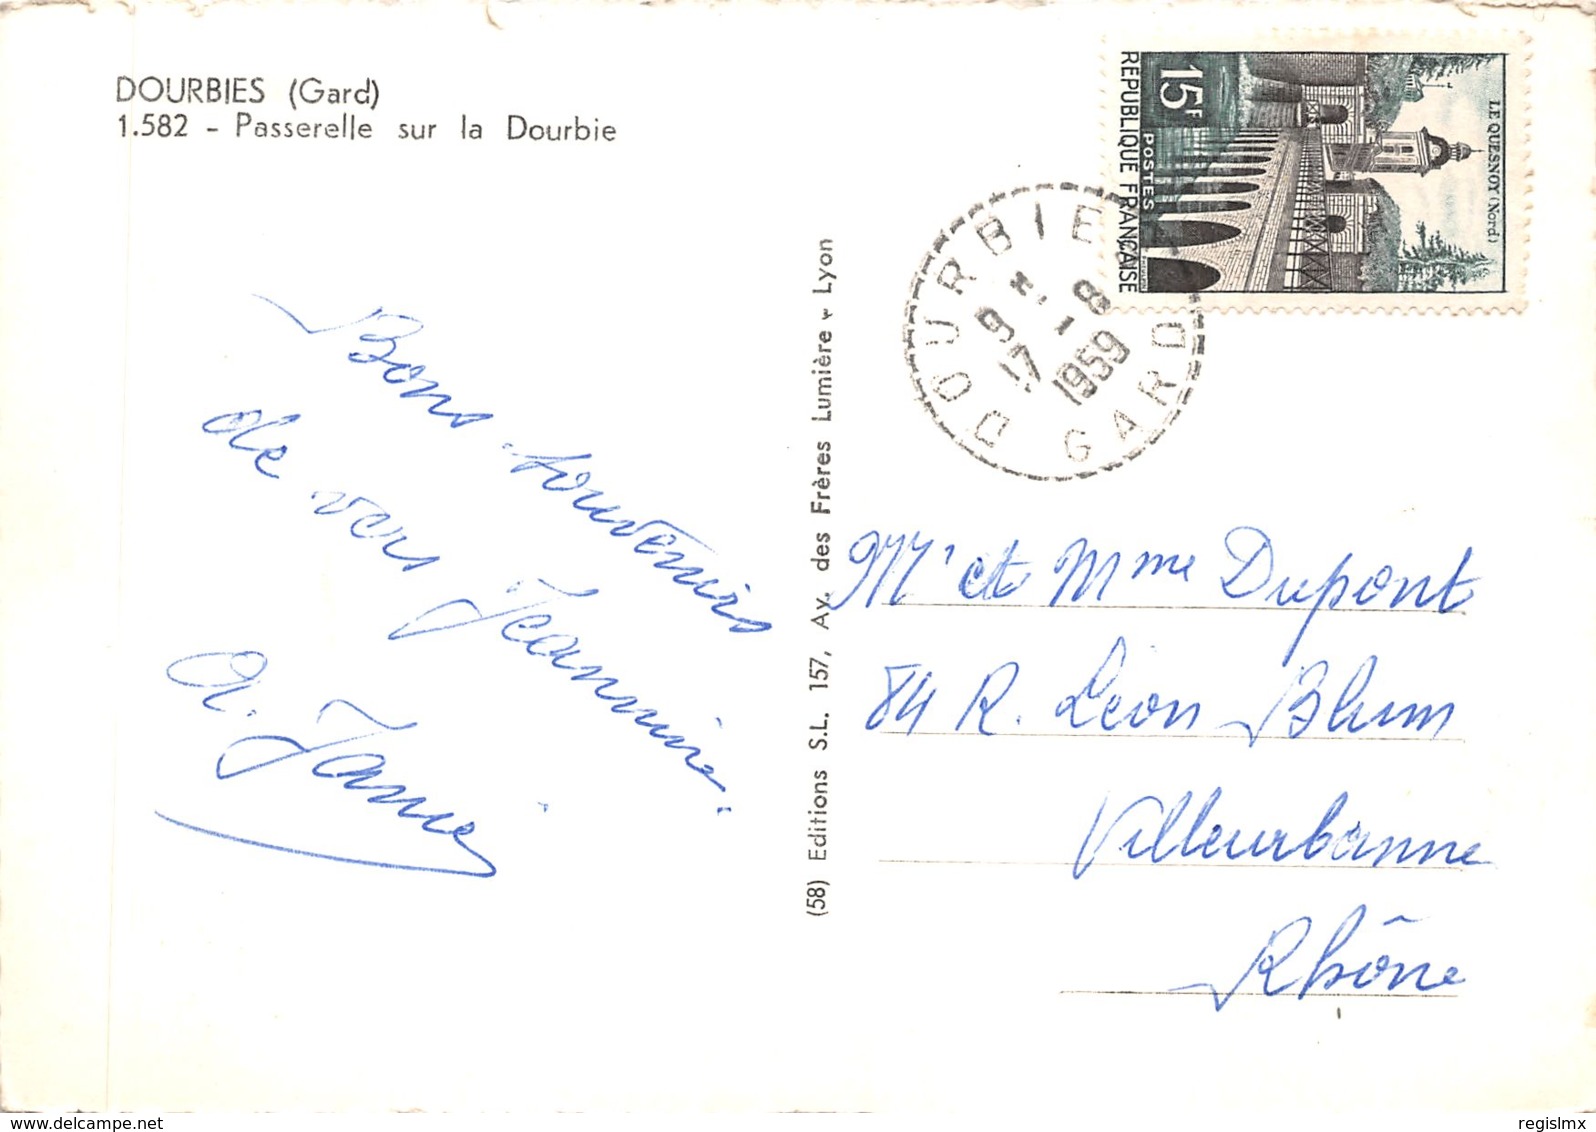 DOURBIES (Gard)
1.582 - Passerelle sur la Dourbie
Bons souvenirs
de vos Jeannine.
A. Jamie
(58) Editions S.L. 157, Av. des Frères Lumière - Lyon
REPUBLIQUE FRANÇAISE
POSTES
15F
LE QUESNOY (Nord)
DOURBIE
9 H.
17 - 8
1959
GARD
Mr et Mme Dupont
84 R. Léon Blum
Villeurbanne
Rhône
delcampe.net
regislmx